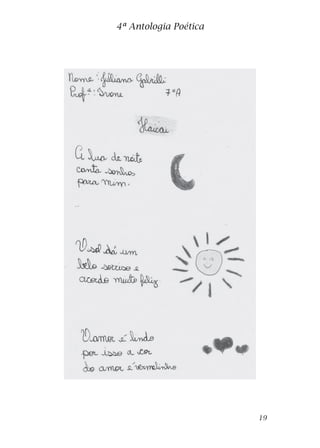 4ª Antologia Poética
Nome: Juliana Gabrilli
Profª: Ivone 7ªA
Haicai
A lua de noite
canta sonhos
para mim.
O sol dá um
belo sorriso e
acordo muito feliz.
O amor é lindo
por isso a cor
do amor é vermelinho
19